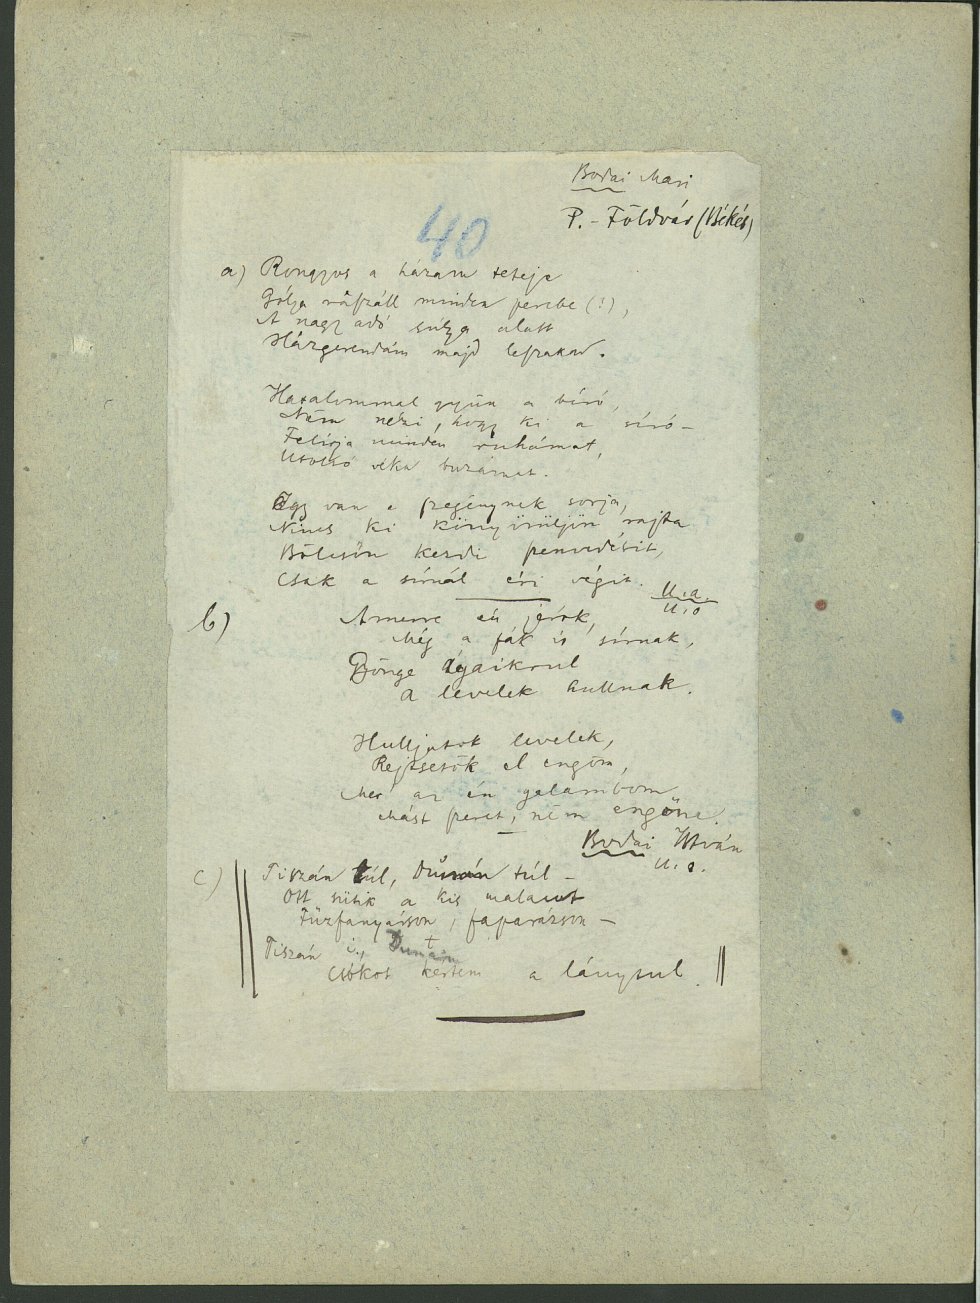 Bodai Mari
P.-Földvár (Békés)
40
a) Rongyos a házam teteje
Gólya rászáll minden percbe (!),
A nagy adó súlya alatt
Házgerendám majd leszakad.
Hatalommal gyün a bíró,
Ném nézi, hogy ki a síró –
Felírja minden ruhámat,
Utolsó véka buzámat.
Igy van a szegénynek sorja,
Nincs ki könyörüljön rajta
Bölcsőn kezdi szenvedésit,
Csak a sírnál éri végit.
U.a.
U.o
b) Amerre én járok,
Még a fák is sírnak,
Gyönge ágaikrul
A levelek hullnak.
Hulljatok levelek,
Rejtsetök el engöm,
Mer az én galambom
Mást szeret, ném engöme.
Bodai István
U.o.
c) Tiszán túl, Dunán túl –
Ott sütik a kis malacot
Füzfanyárson, faparázson –
Tiszán i., Dunáin t
Csókot kértem a lánytul.